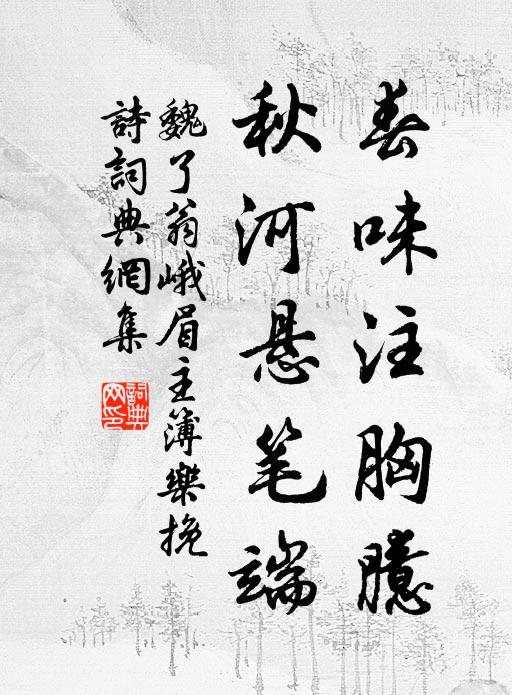 春味注胸臆
秋河悬笔端
魏了翁峨眉主簿樂挽
詩詞典網集
詩詞典网印